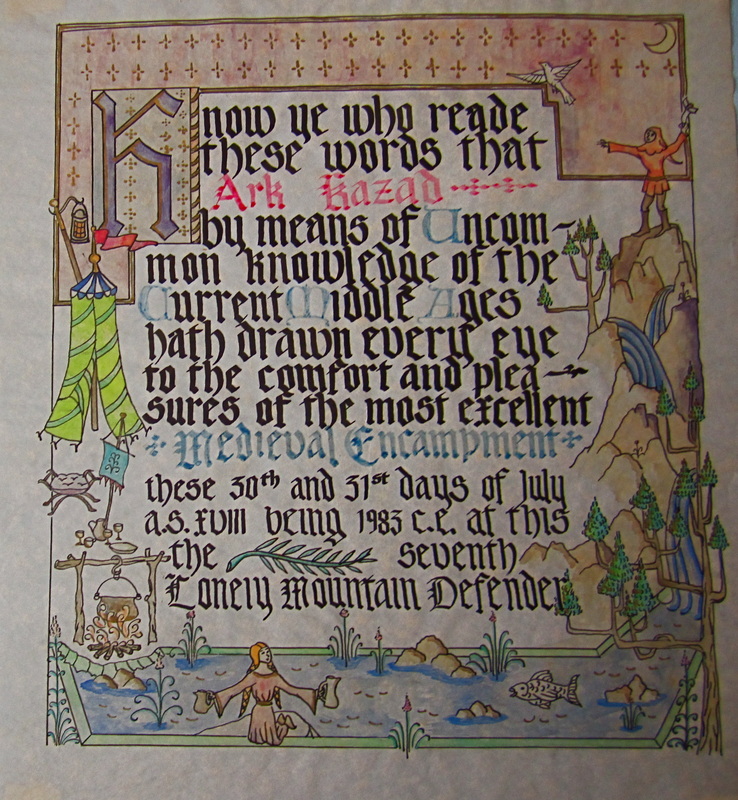 Know ye who reade
these words that
Ark Kazad
by means of Uncom~
mon knowledge of the
Current Middle Ages
hath drawn every eye
to the comfort and plea~
sures of the most excellent
Medieval Encampment
these 30th and 31st days of July
a.s. XVIII being 1983 c.e. at this
the seventh
Lonely Mountain Defender